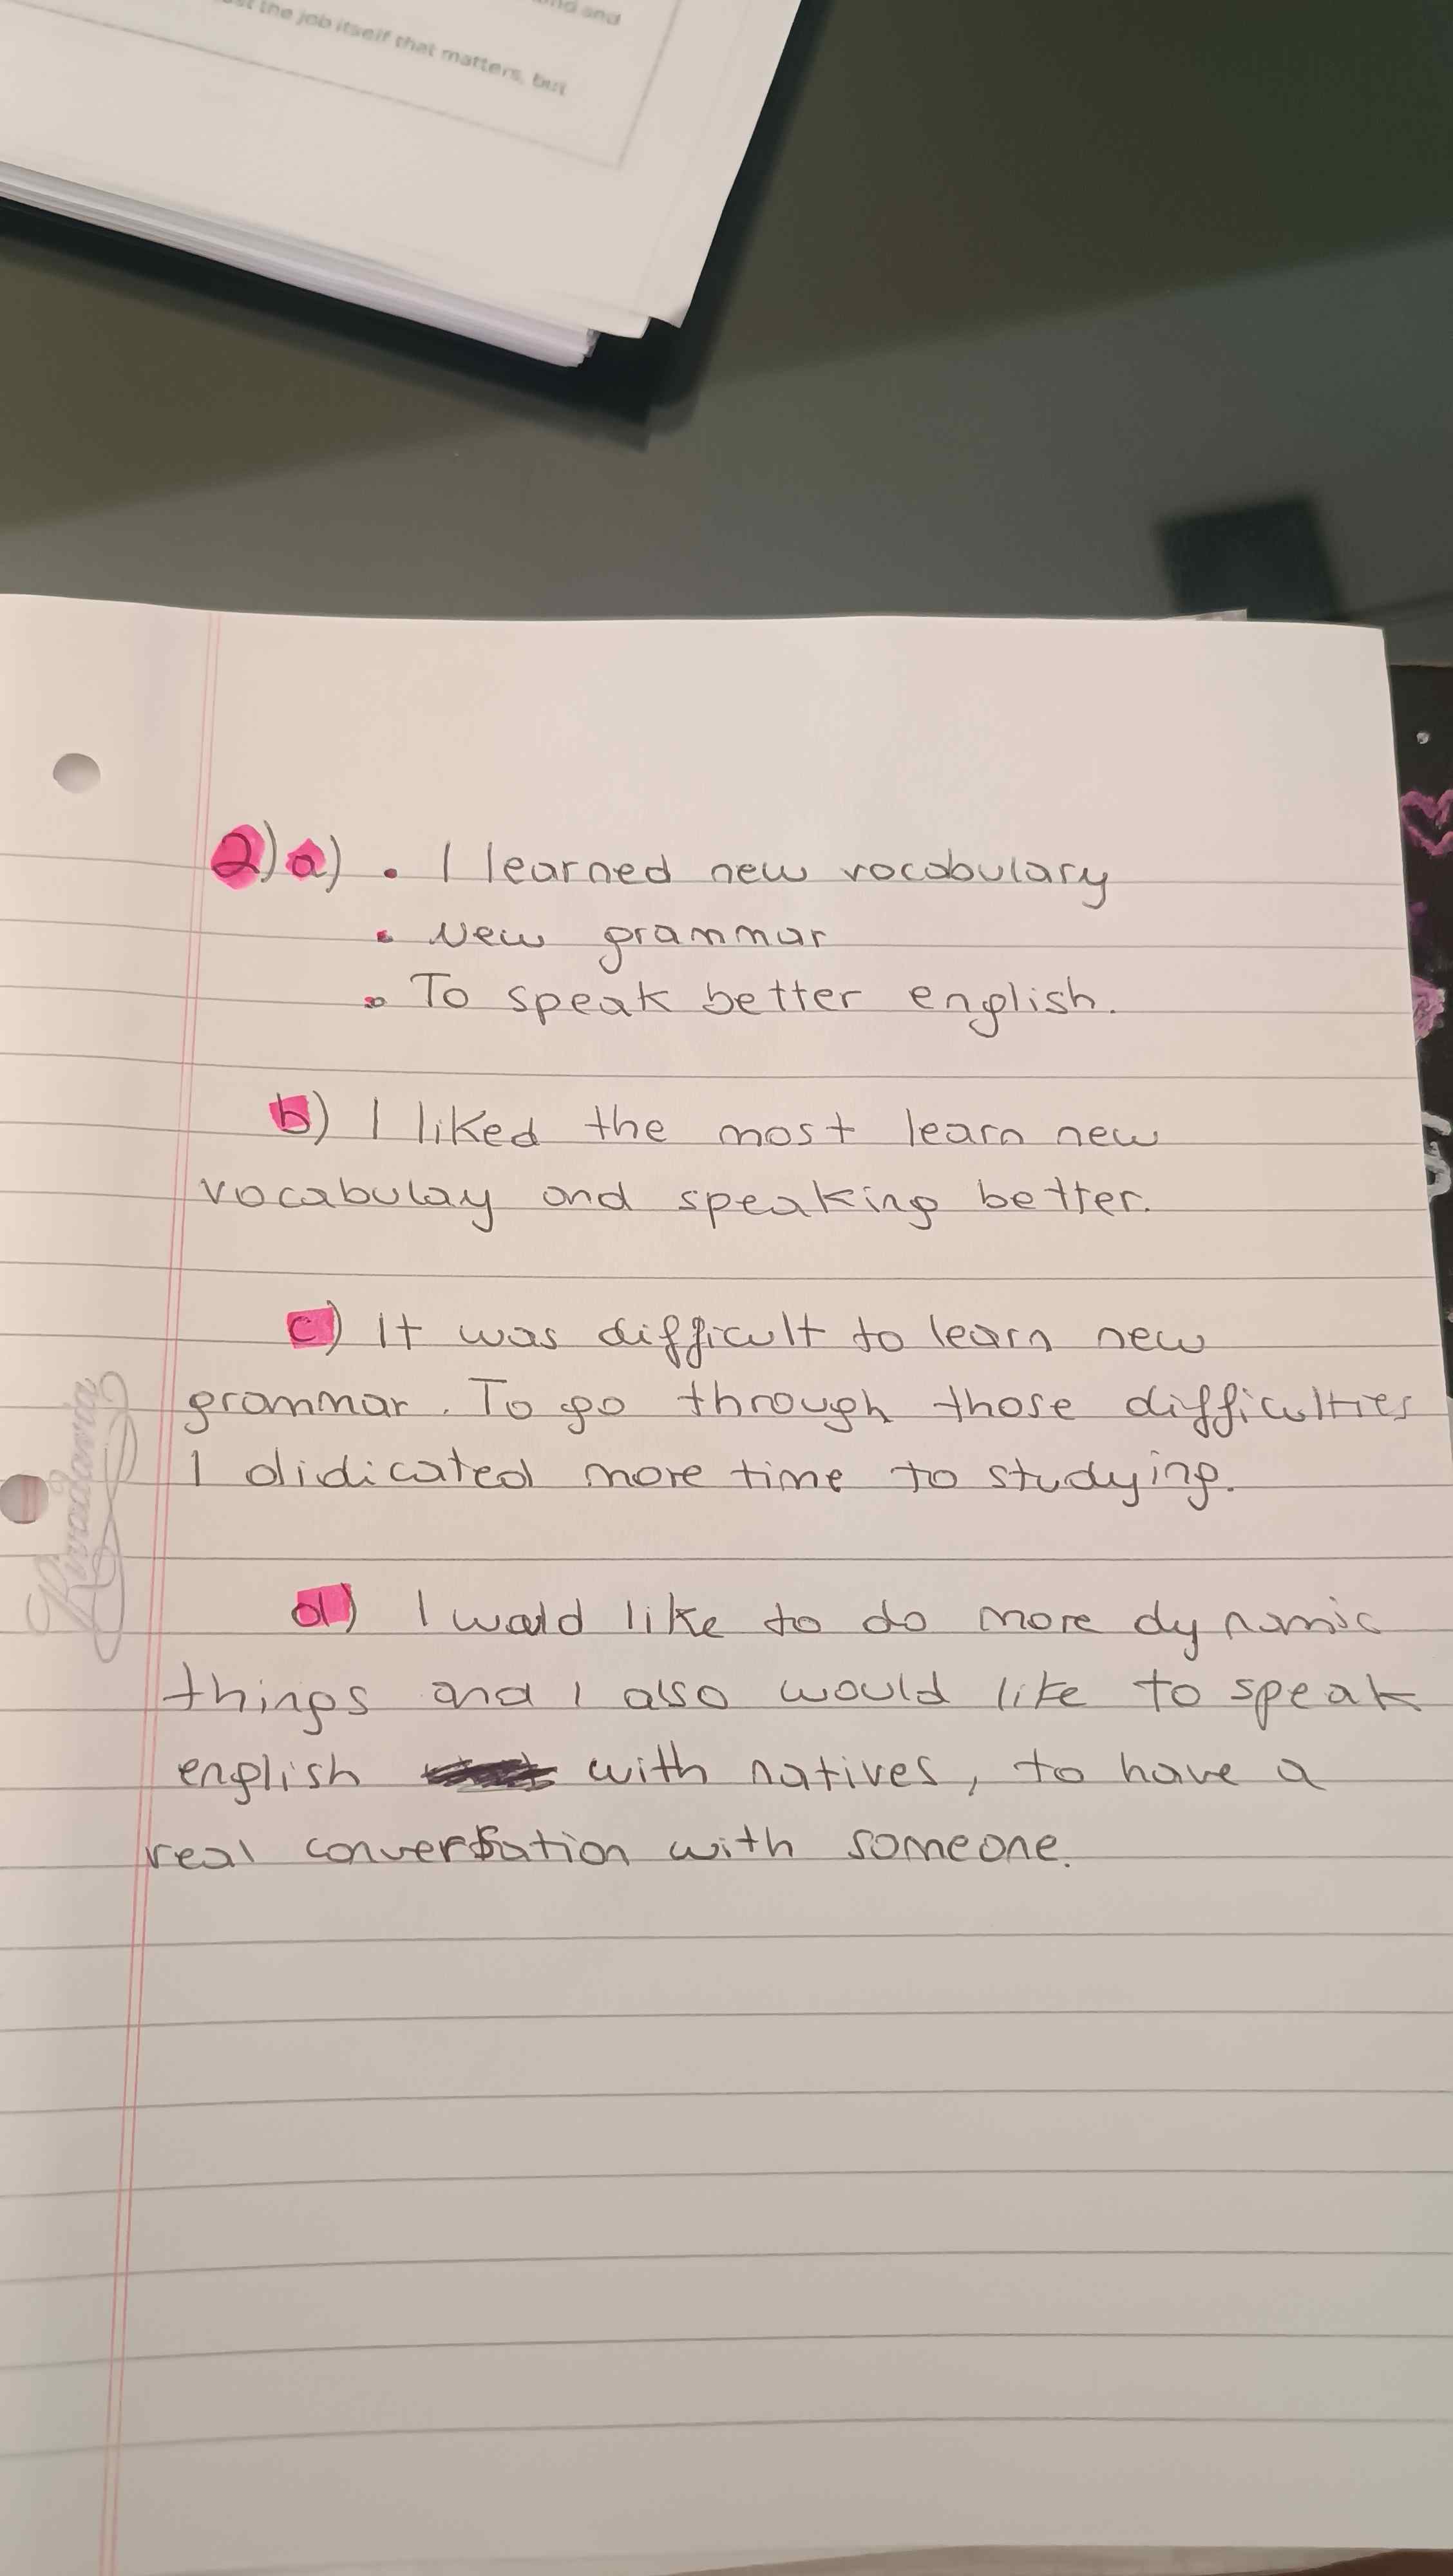 and
the job itself that matters, but
2) a) • I learned new vocabulary
• New grammar
• To speak better english.
b) I liked the most learn new
vocabulay and speaking better.
c) It was difficult to learn new
grammar. To go through those difficulties
I didicated more time to studying.
d) I would like to do more dynamic
things and I also would like to speak
english with natives, to have a
real conversation with someone.